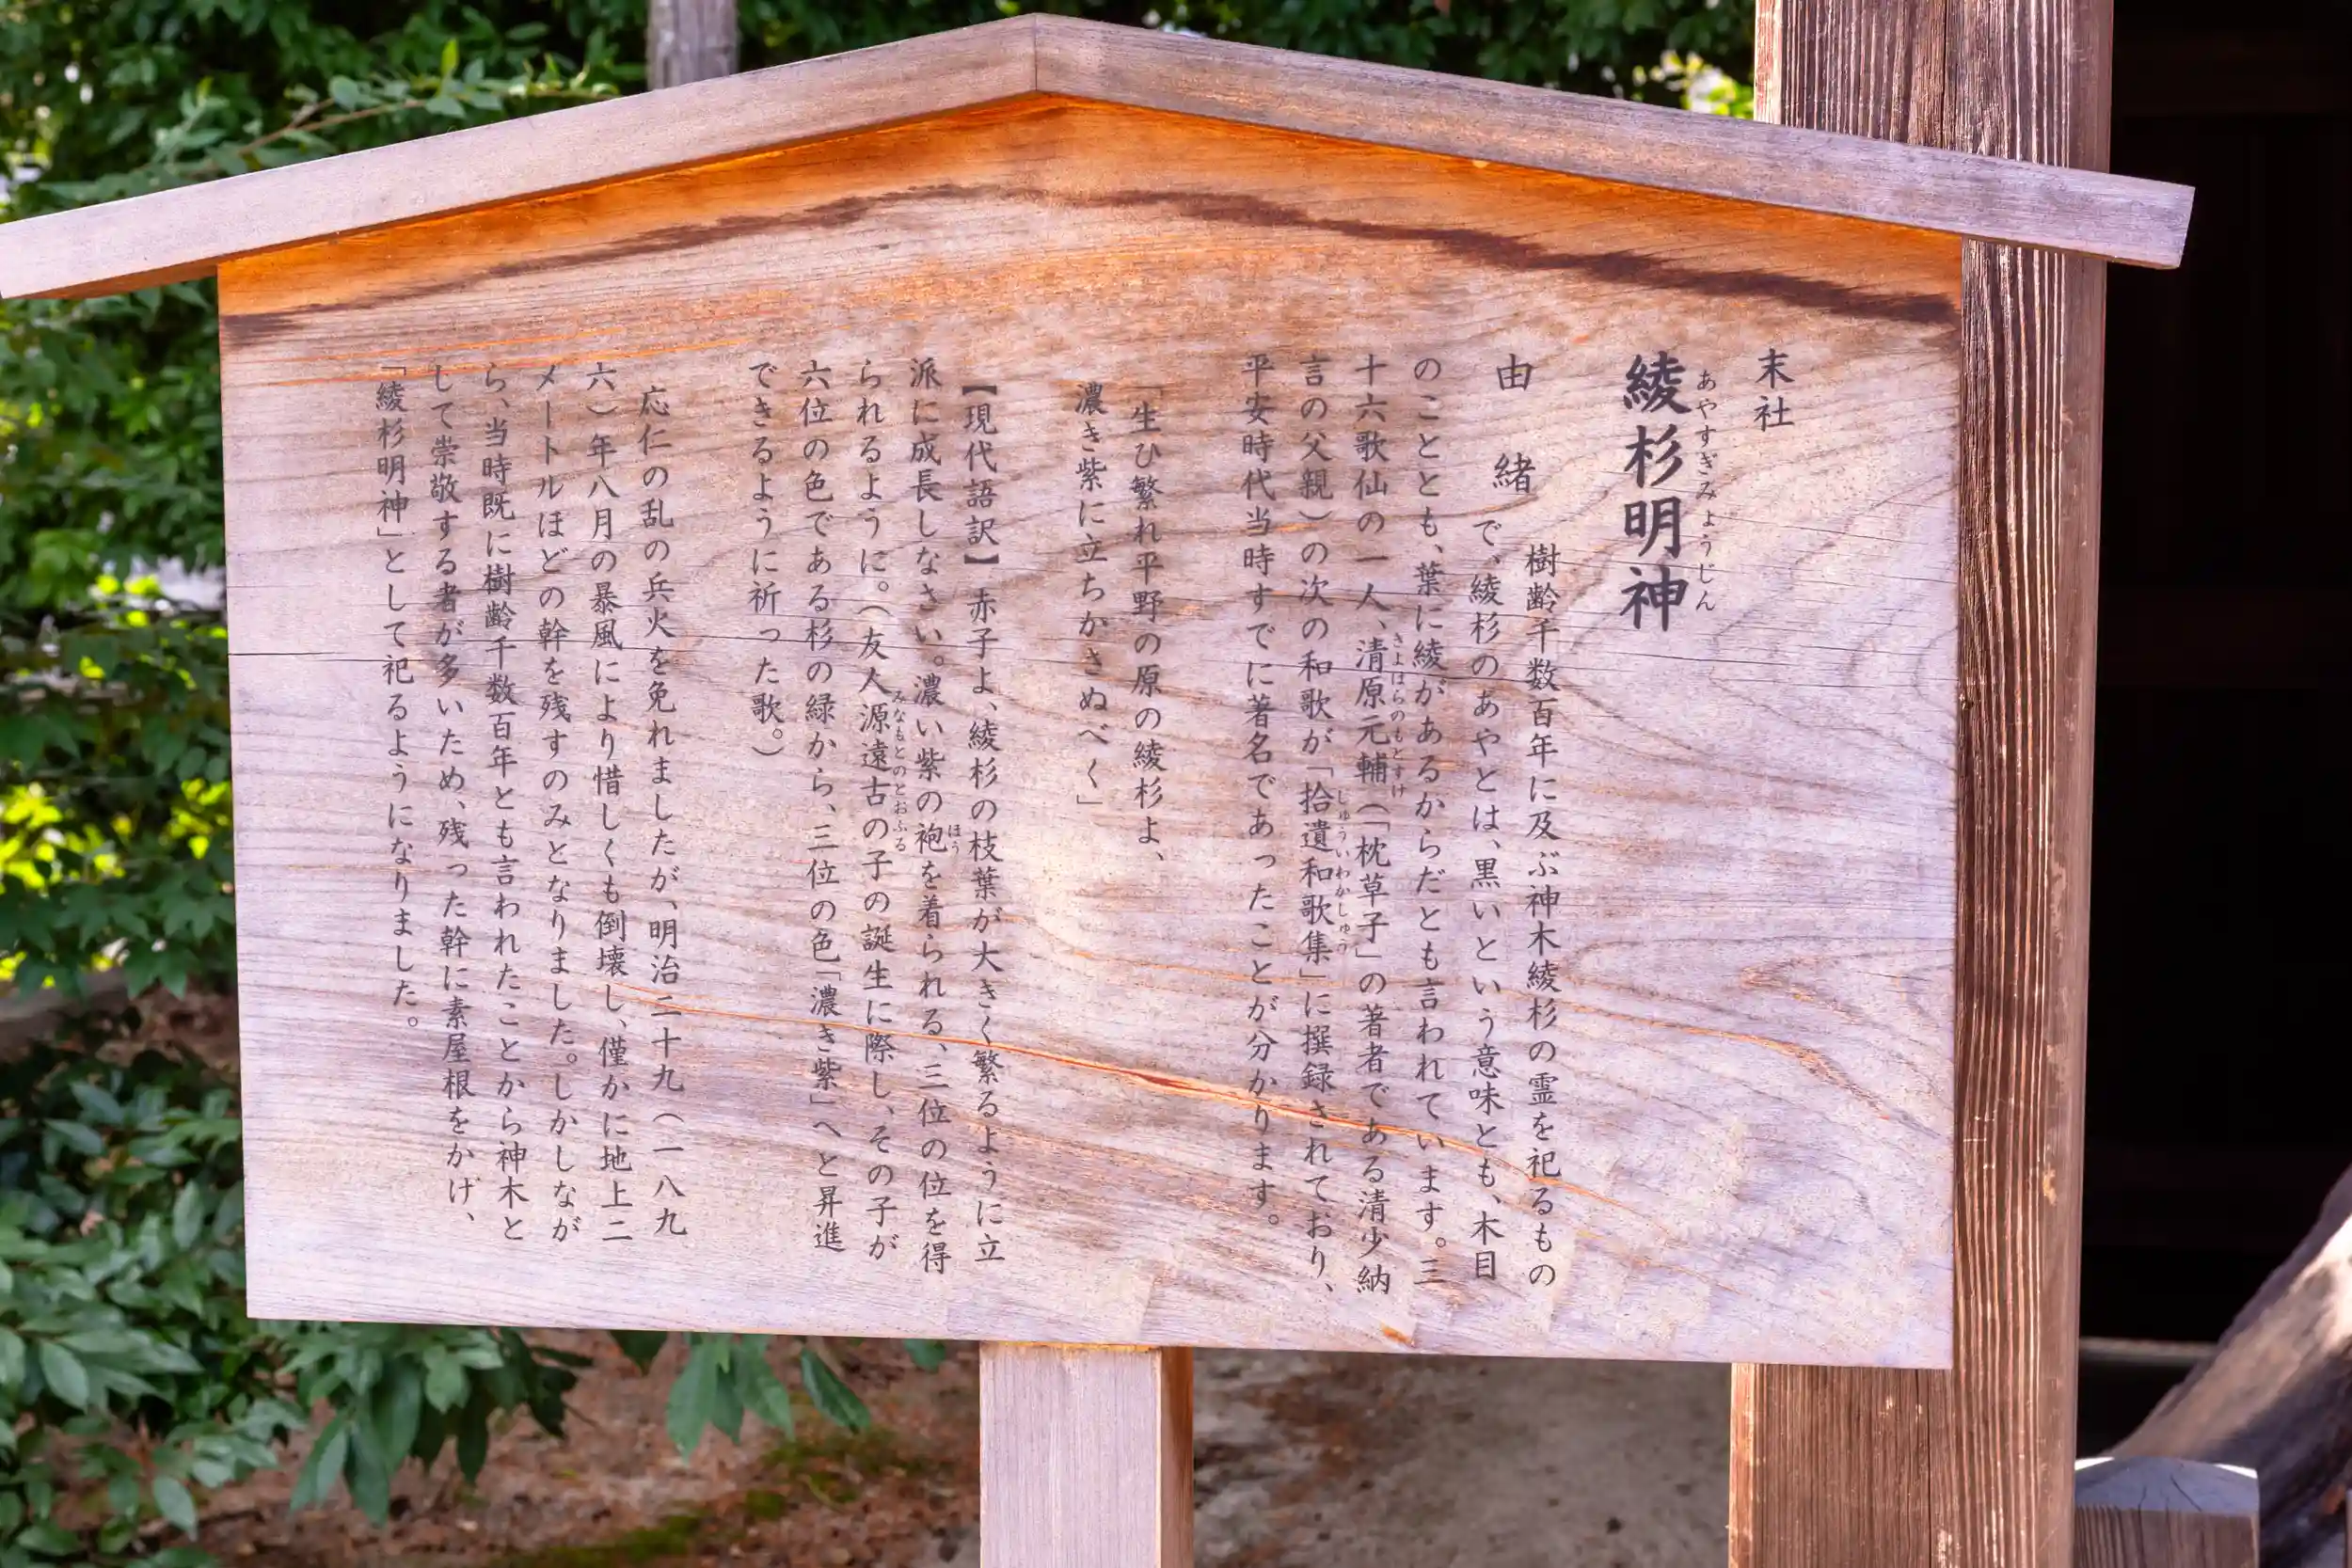 末社
綾杉明神
あやすぎみょうじん
由緒
樹齢千数百年に及ぶ神木綾杉の霊を祀るもの
で、綾杉のあやとは、黒いという意味とも、木目
のこととも、葉に綾があるからだとも言われています。三
十六歌仙の一人、清原元輔(「枕草子」の著者である清少納
きよはらのもとすけ
言の父親)の次の和歌が「拾遺和歌集」に撰録されており、
しゅういわかしゅう
平安時代当時すでに著名であったことが分かります。
「生ひ繁れ平野の原の綾杉よ、
濃き紫に立ちかさぬべく」
【現代語訳】赤子よ、綾杉の枝葉が大きく繁るように立
派に成長しなさい。濃い紫の袍を着られる、三位の位を得
ほう
られるように。(友人源遠古の子の誕生に際し、その子が
みなもとのとおふる
六位の色である杉の緑から、三位の色「濃き紫」へと昇進
できるように祈った歌。)
応仁の乱の兵火を免れましたが、明治二十九(一八九
六)年八月の暴風により惜しくも倒壊し、僅かに地上二
メートルほどの幹を残すのみとなりました。しかしなが
ら、当時既に樹齢千数百年とも言われたことから神木と
して崇敬する者が多いため、残った幹に素屋根をかげ、
「綾杉明神」として祀るようになりました。